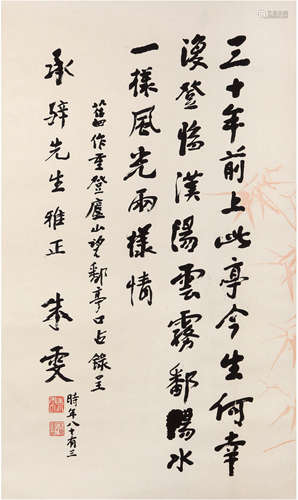 三十年前上此亭今生何幸
复登临汉阳雲霧鄱陽水
一樣風光兩樣情
舊作重登廬山望鄱亭口占錄呈
承辭先生雅正
朱雯
時年八十有三